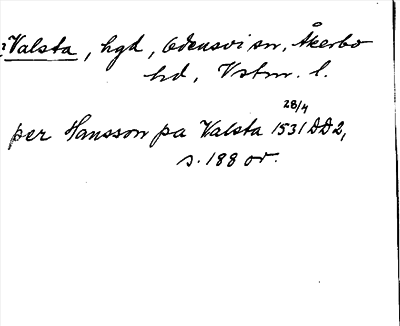 Valsta, hgd, Odensvi sn, Åkerbo
hd, Vstm. l.
per Hansson pa Valsta 1531 28/4 DD2,
s. 188 or.